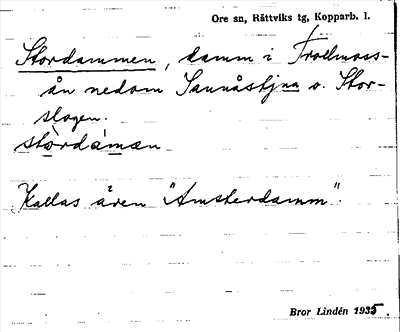 Ore sn, Rättviks tg, Kopparb. l.
Stordammen, damm i Trollmoss-
ån nedom Sannåstjna o. Stor-
slogen.
stòrdámən
Kallas även "Amsterdamm".
Bror Lindén 1935.